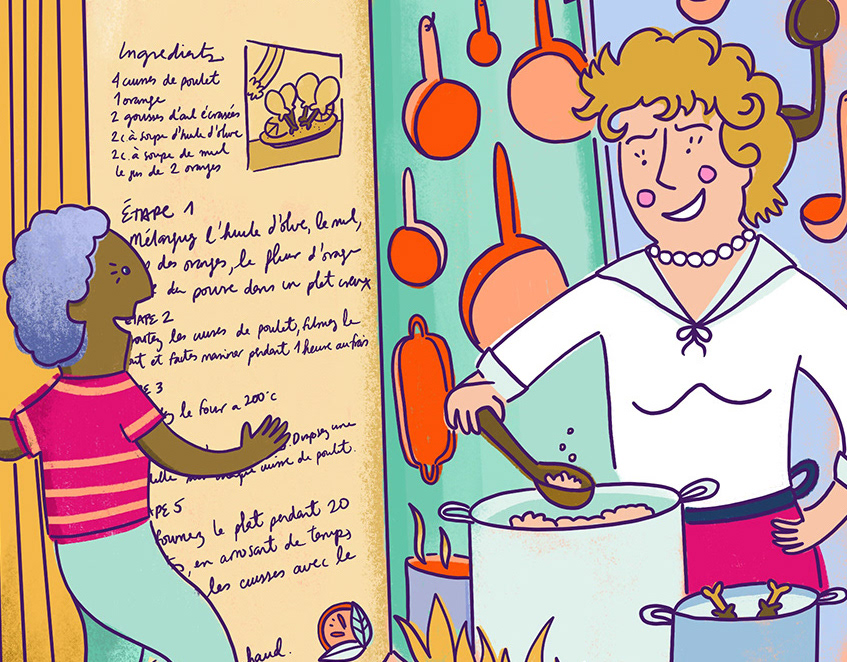 Ingredients
4 cuisses de poulet
1 orange
2 gousses d'ail écrasées
2 c à soupe d'huile d'olive
2 c. à soupe de miel
le jus de 2 oranges
ÉTAPE 1
Mélangez l'huile d'olive, le miel,
des oranges, le fleur d'orange
du poivre dans un plat creux
TAPE 2
les cuisses de poulet, filmez le
et faites mariner pendant 1 heure au frais
PE 3
le four a 200°c
Disposez une
cuisse de poulet.
PE 5
fournez le plat pendant 20
, en arrosant de temps
les cuisses avec le
chaud.